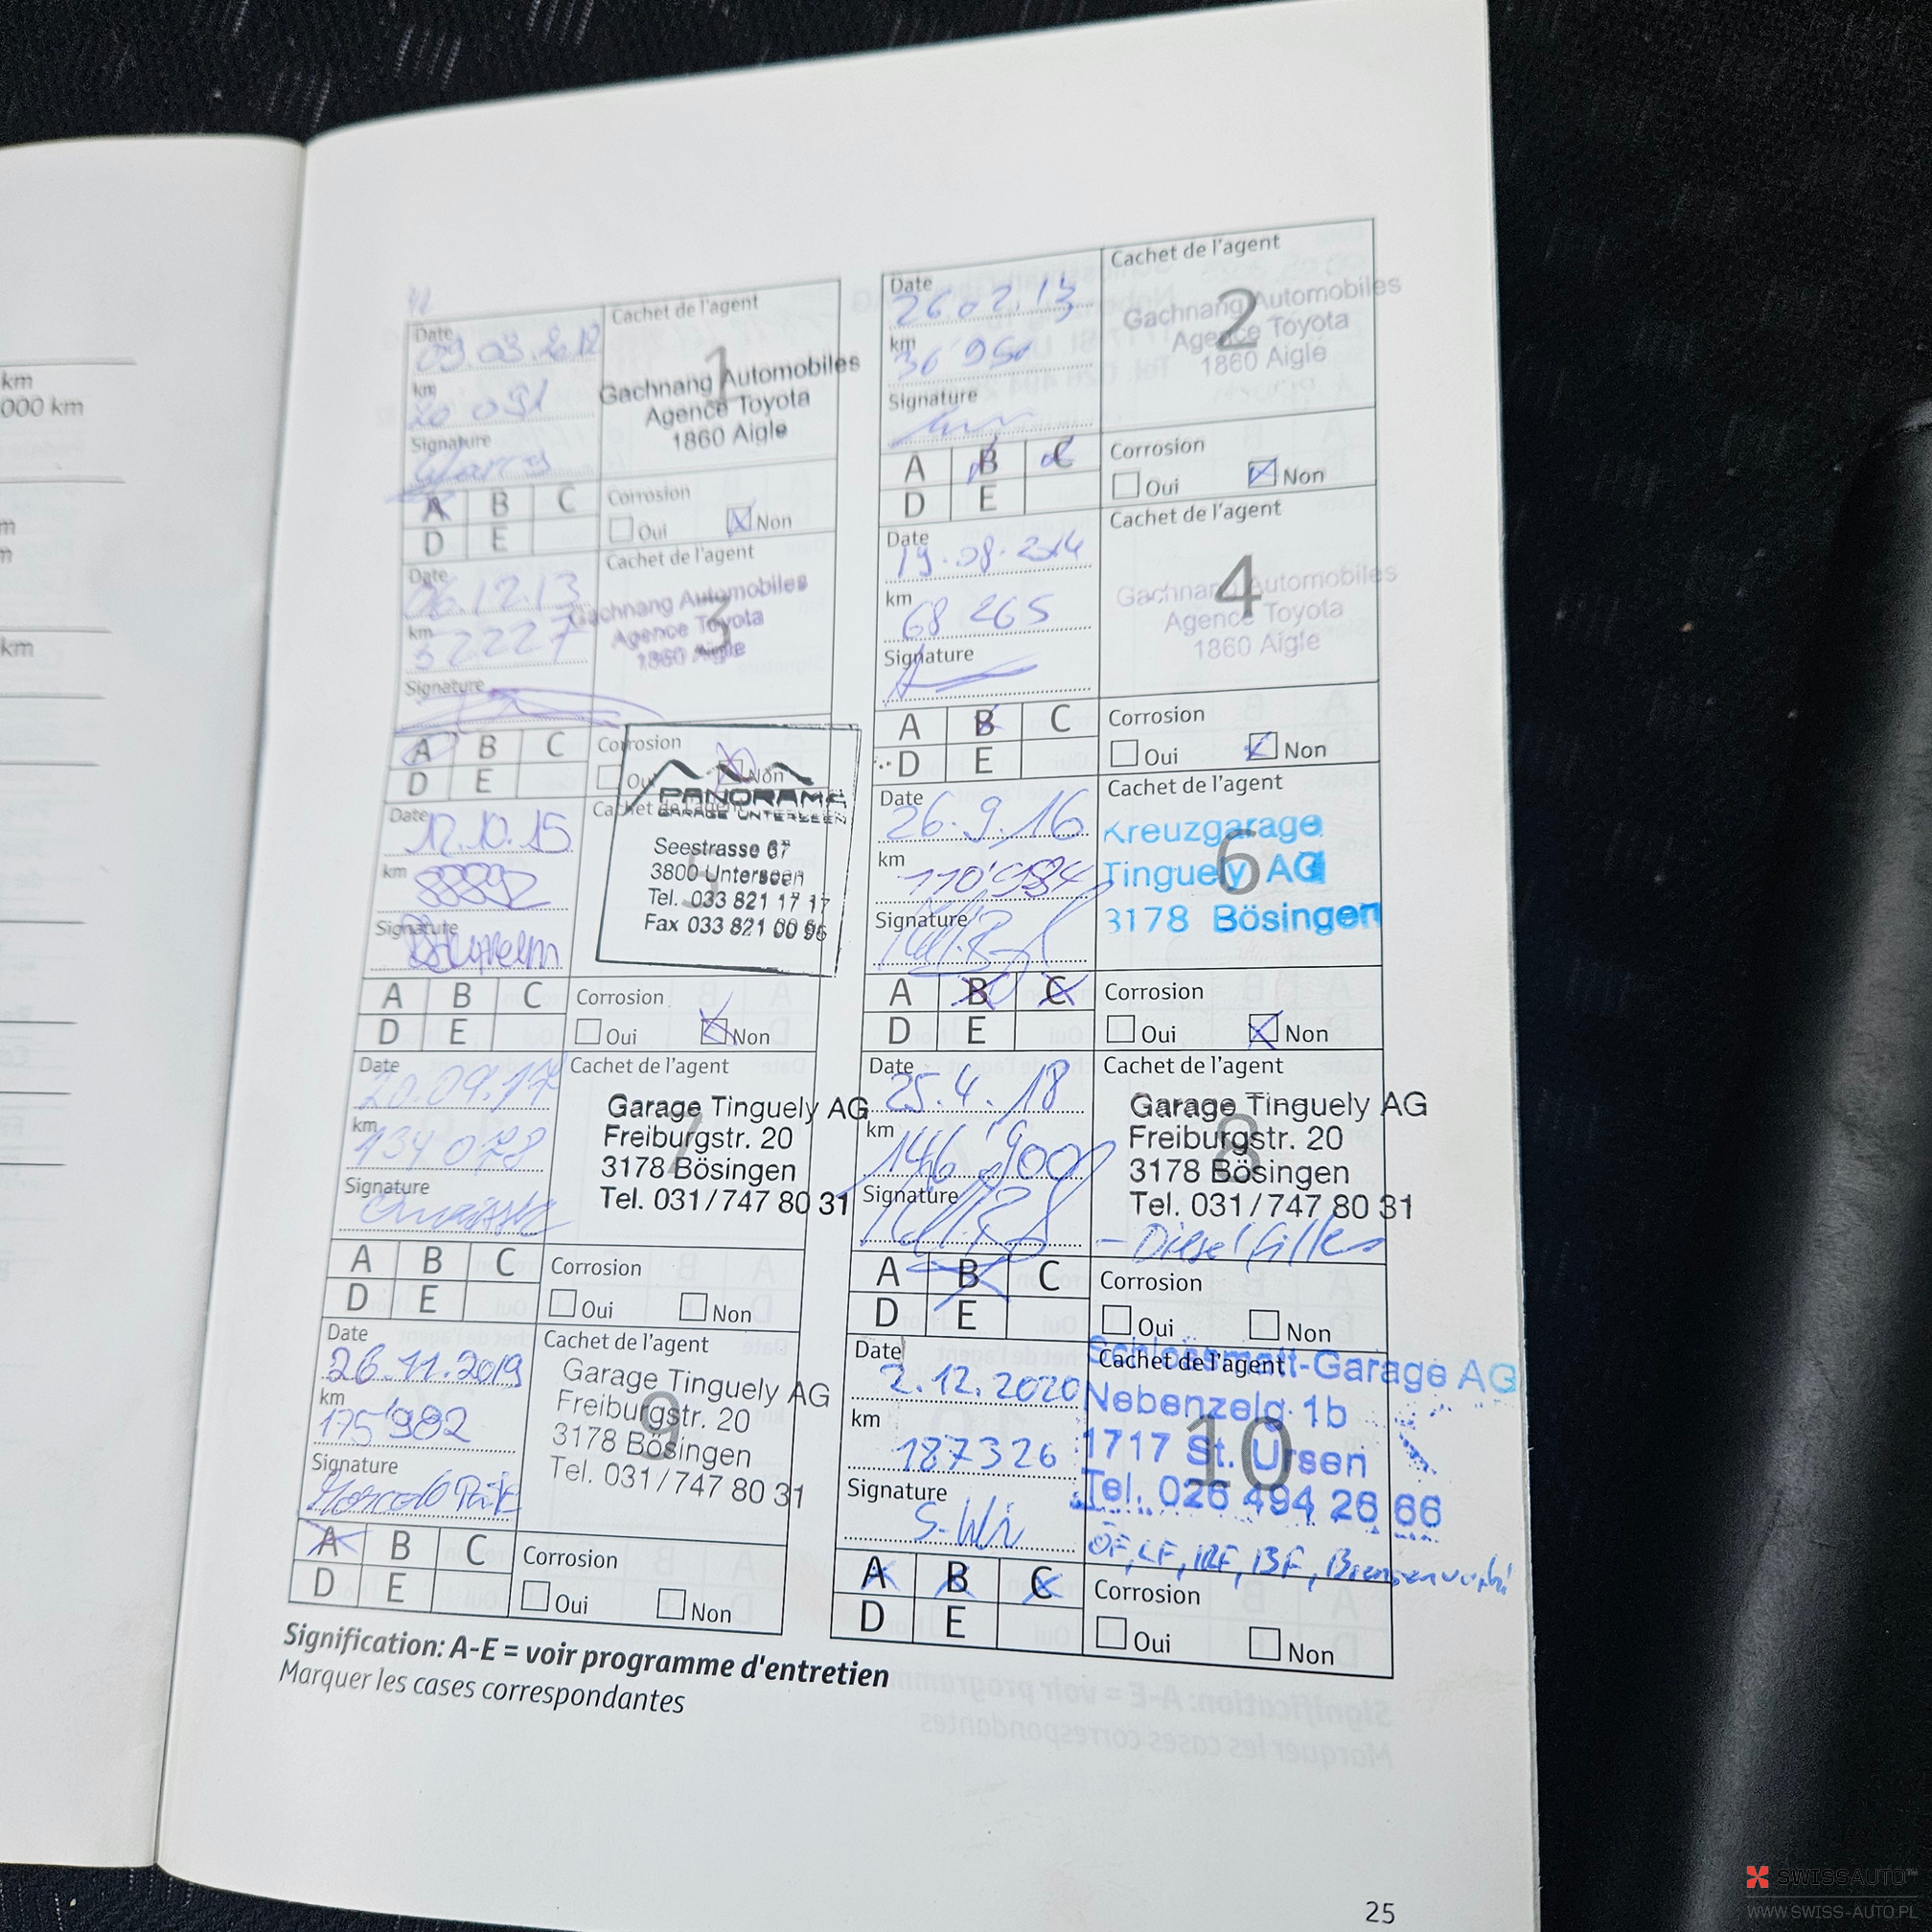 km
000 km
m
m
km
Date
09.03.2012
km
20 091
Signature
Cachet de l'agent
1
Gachnang Automobiles
Agence Toyota
1860 Aigle
A B C
D E
Corrosion
Oui Non
Date
26 02.13
km
36'950
Signature
Cachet de l'agent
2
Gachnang Automobiles
Agence Toyota
1860 Aigle
A B C
D E
Corrosion
Oui Non
Date
06.12.13
km
52227
Signature
Cachet de l'agent
3
Gachnang Automobiles
Agence Toyota
1860 Aigle
A B C
D E
Corrosion
Oui Non
Date
19.08.2014
km
68 265
Signature
Cachet de l'agent
4
Gachnang Automobiles
Agence Toyota
1860 Aigle
A B C
D E
Corrosion
Oui Non
Date
12.10.15
km
88892
Signature
Cachet de l'agent
PANORAMA
GARAGE UNTERSEEN
Seestrasse 67
3800 Unterseen
Tel. 033 821 17 17
Fax 033 821 00 96
A B C
D E
Corrosion
Oui Non
Date
26.9.16
km
110'984
Signature
Cachet de l'agent
6
Kreuzgarage
Tinguely AG
3178 Bösingen
A B C
D E
Corrosion
Oui Non
Date
20.09.17
km
134 078
Signature
Cachet de l'agent
7
Garage Tinguely AG
Freiburgstr. 20
3178 Bösingen
Tel. 031/747 80 31
A B C
D E
Corrosion
Oui Non
Date
25.4.18
km
146'900
Signature
Cachet de l'agent
8
Garage Tinguely AG
Freiburgstr. 20
3178 Bösingen
Tel. 031/747 80 31
- Dieselfilter
A B C
D E
Corrosion
Oui Non
Date
26.11.2019
km
175'982
Signature
Cachet de l'agent
9
Garage Tinguely AG
Freiburgstr. 20
3178 Bösingen
Tel. 031/747 80 31
A B C
D E
Corrosion
Oui Non
Date
2.12.2020
km
187326
Signature
S. Wi
Cachet de l'agent
10
Schlossmatt-Garage AG
Nebenzelg 1b
1717 St. Ursen
Tel. 026 494 26 66
ÖF, LF, IRF, BF,
A B C
D E
Corrosion
Oui Non
Signification: A-E = voir programme d'entretien
Marquer les cases correspondantes
25
SWISSAUTO
WWW.SWISS-AUTO.PL